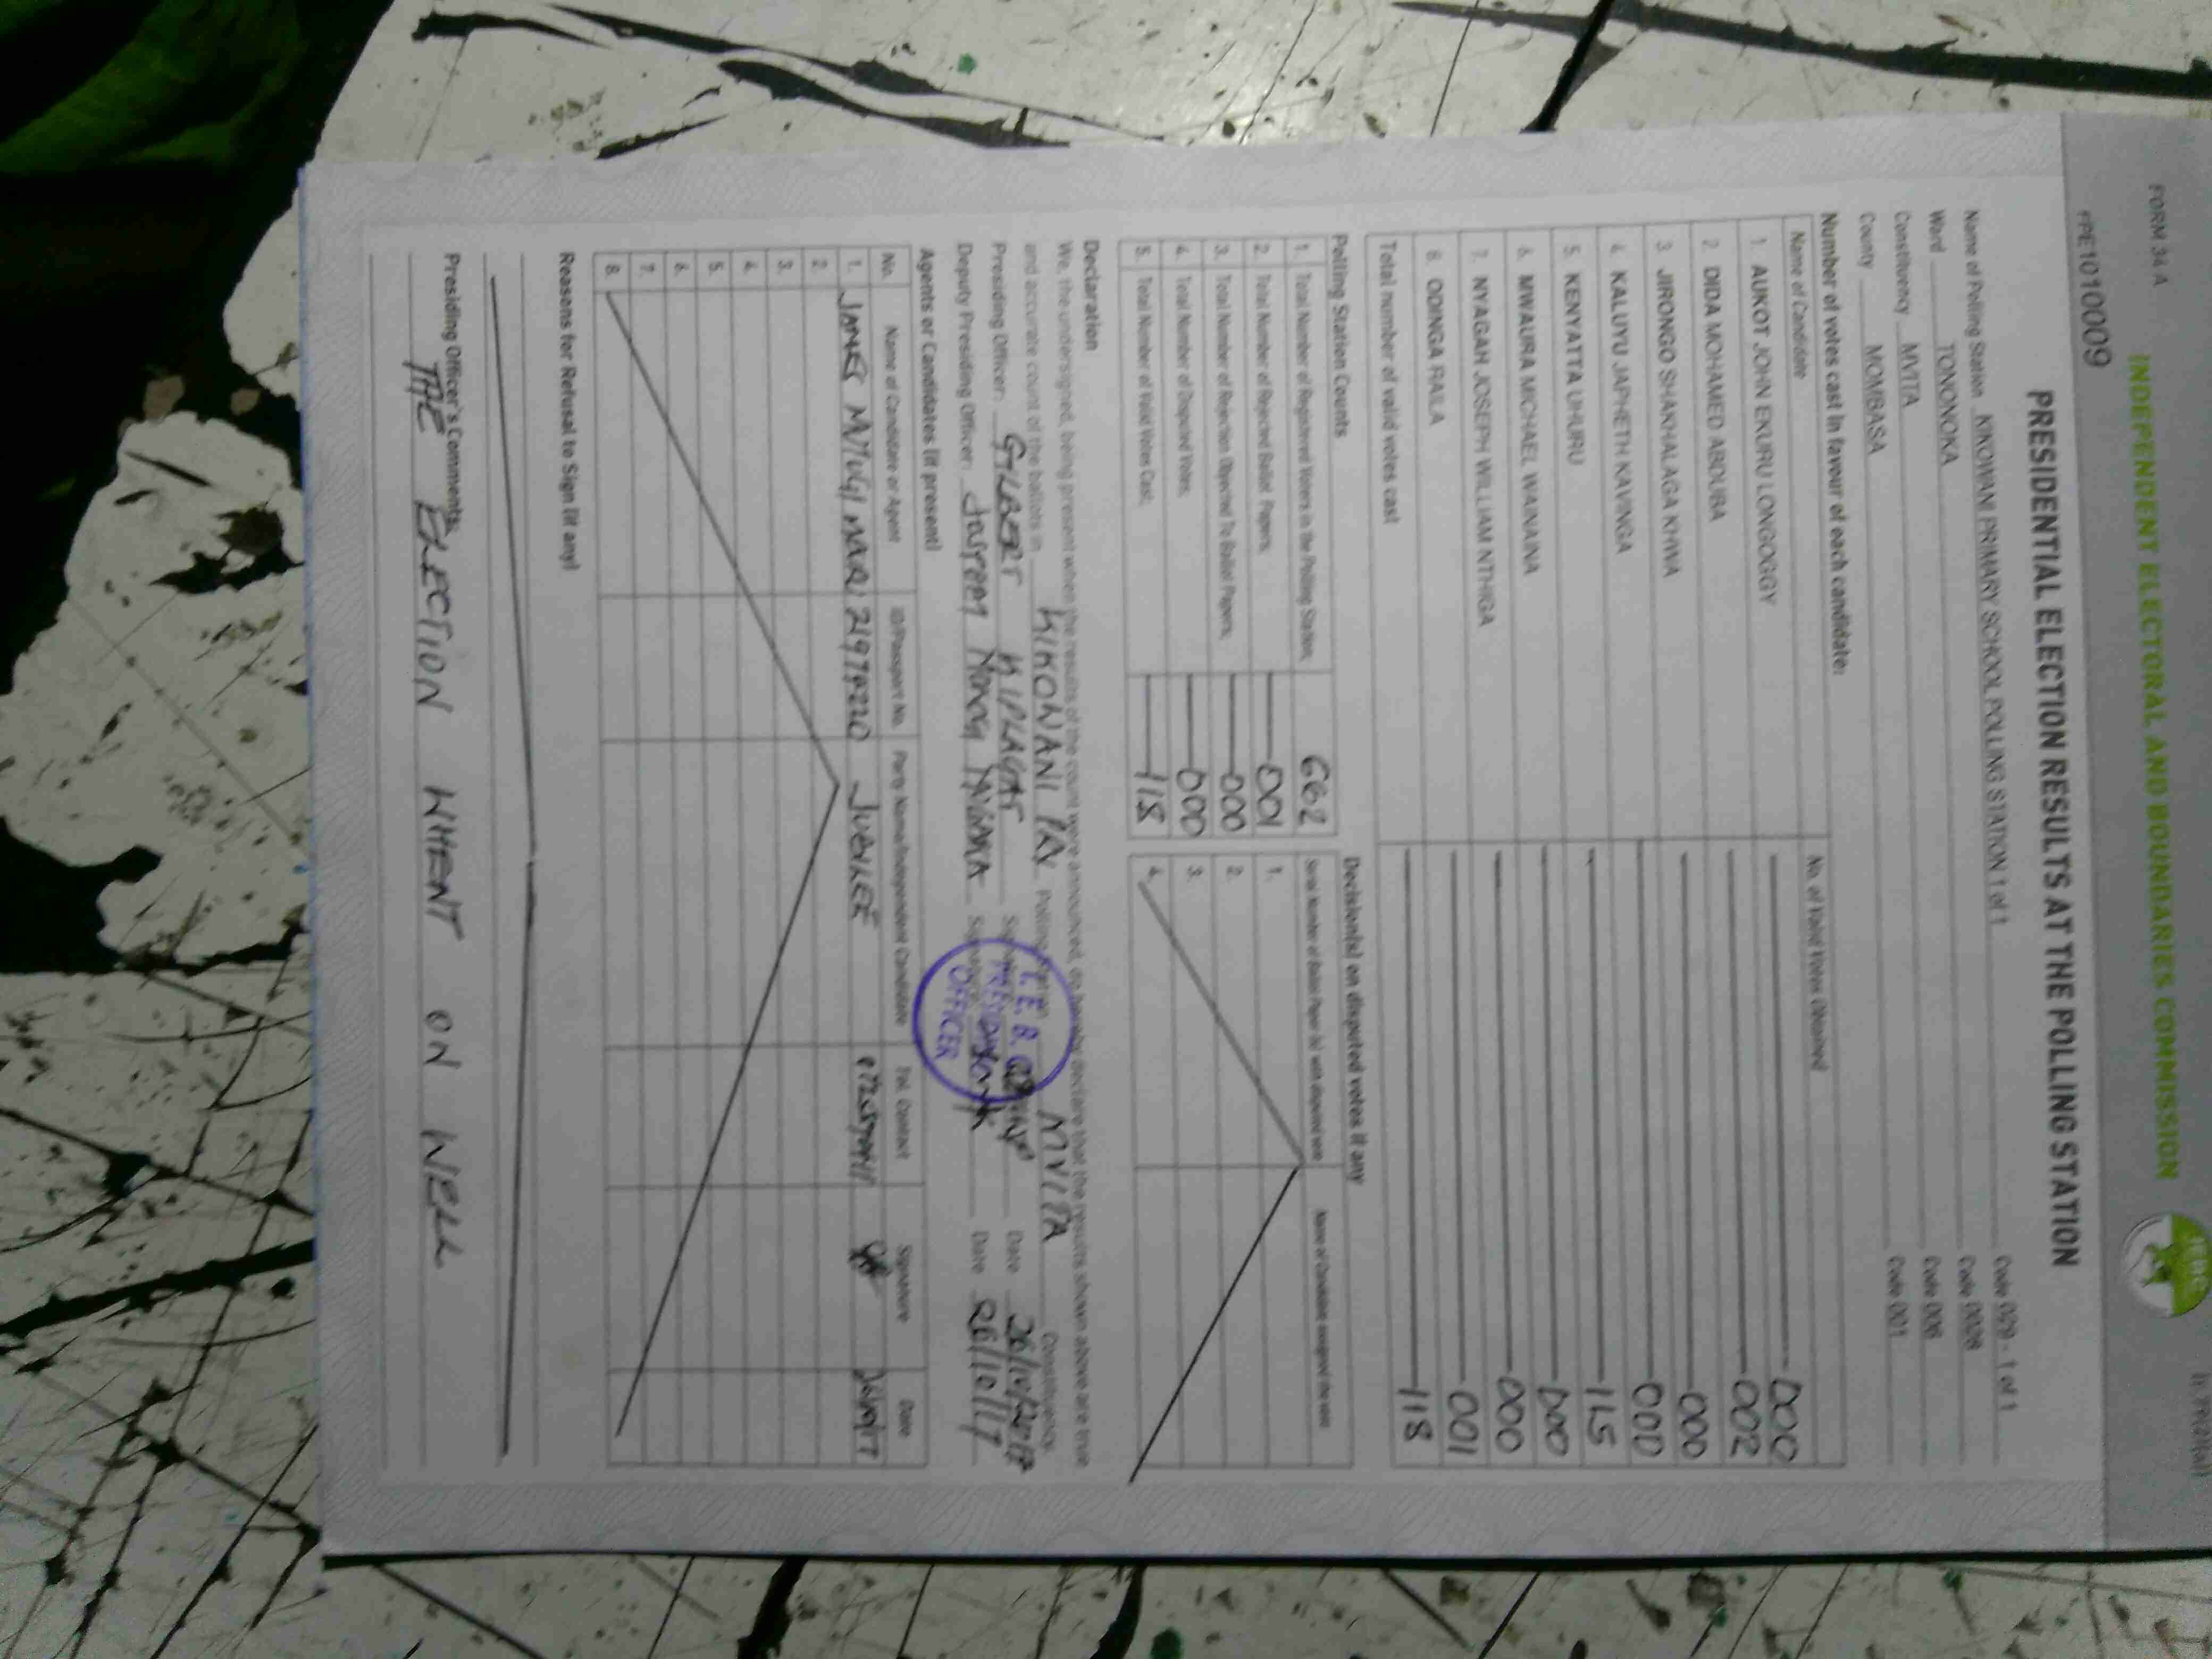 FORM 34 A
INDEPENDENT ELECTORAL AND BOUNDARIES COMMISSION
IEBC
PRESIDENTIAL ELECTION RESULTS AT THE POLLING STATION
Name of Polling Station KIKOWANI PRIMARY SCHOOL POLLING STATION 1 of 1 Code 029 - 1 of 1
Ward TONONOKA Code 0028
Constituency MVITA Code 006
County MOMBASA Code 001
Number of votes cast in favour of each candidate:
Name of Candidate No. of Valid Votes Obtained
1. AUKOT JOHN EKURU LONGOGGY 000
2. DIDA MOHAMED ABDUBA 002
3. JIRONGO SHAKHALAGA KHWA 000
4. KALUYU JAPHETH KAVINGA 000
5. KENYATTA UHURU 115
6. MWAURA MICHAEL WAINAINA 000
7. NYAGAH JOSEPH WILLIAM NTHIGA 000
8. ODINGA RAILA 001
Total number of valid votes cast 118
Polling Station Counts
1. Total Number of Registered Voters in the Polling Station; 662
2. Total Number of Rejected Ballot Papers; 001
3. Total Number of Rejection Objected To Ballot Papers; 000
4. Total Number of Disputed Votes; 000
5. Total Number of Valid Votes Cast; 118
Decision(s) on disputed votes if any
Serial Number of Ballot Paper (s) with disputed vote Name of Candidate assigned the vote
1.
2.
3.
4.
Declaration
We, the undersigned, being present when the results of the count were announced, do hereby declare that the results shown above are true
and accurate count of the ballots in KIKOWANI PRY Polling MVITA Constituency.
Presiding Officer: GILBERT KIPLAGAT Date 26/10/2017
Deputy Presiding Officer: Date 26/10/17
I.E.B.C
PRESIDING
OFFICER
Agents or Candidates (if present)
No. Name of Candidate or Agent ID/Passport No. Party Name/Independent Candidate Tel. Contact Signature Date
1. JAMES 21979220 JUBILEE
2.
3.
4.
5.
6.
7.
8.
Reasons for Refusal to Sign (if any)
Presiding Officer's Comments:
THE ELECTION WHENT ON WELL